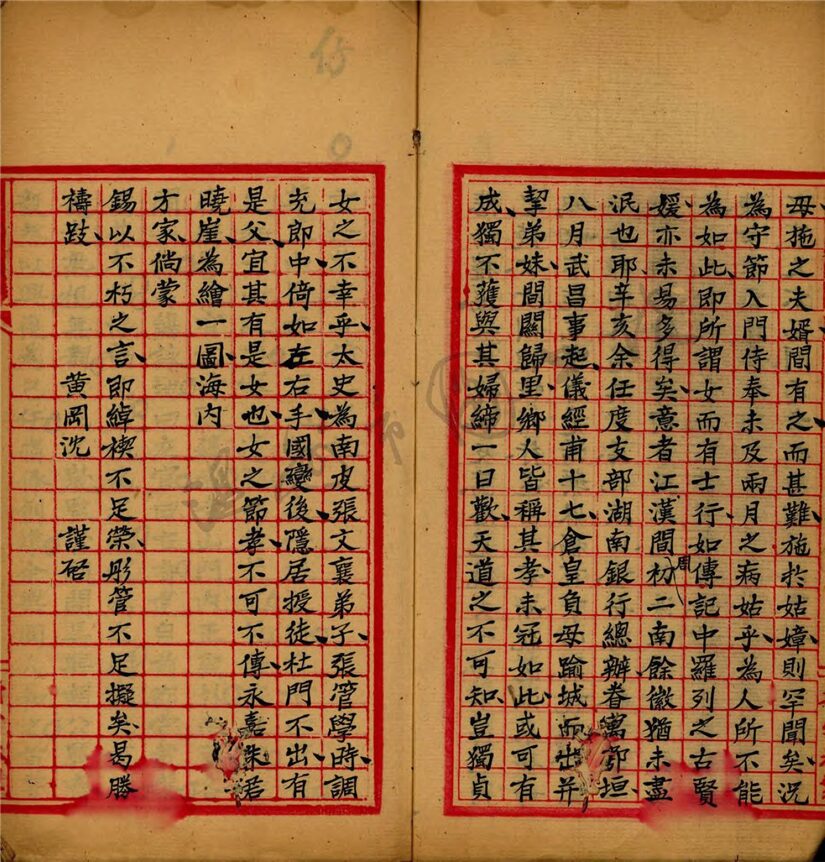 毋拖之夫婿間有之而甚難施於姑嫜則罕聞矣況
為守節入門侍奉未及兩月之病姑乎為人所不能
為如此即所謂女而有士行如傳記中羅列之古賢
媛亦未易多得矣意者江漢間被周二南餘徽猶未盡
泯也耶辛亥余任度支部湖南銀行總辦眷寓鄂垣
八月武昌事起儀經甫十七倉皇負母踰城而出并
挈弟妹間關歸里鄉人皆稱其孝未冠如此或可有
成獨不獲與其婦締一日歡天道之不可知豈獨貞
女之不幸乎太史為南皮張文襄弟子張管學時調
充郎中倚如左右手國變後隱居授徒杜門不出有
是父宜其有是女也女之節孝不可不傳永嘉朱君
曉崖為繪一圖海内
方家倘蒙
錫以不朽之言即綽楔不足榮彤管不足擬矣曷勝
禱跂 黄岡沈 謹啓